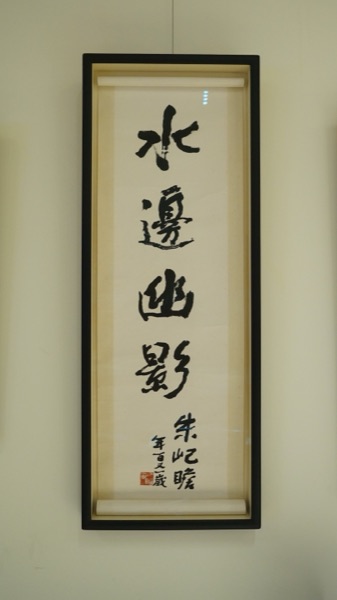 水邊幽影
朱屺瞻
年百又一歲